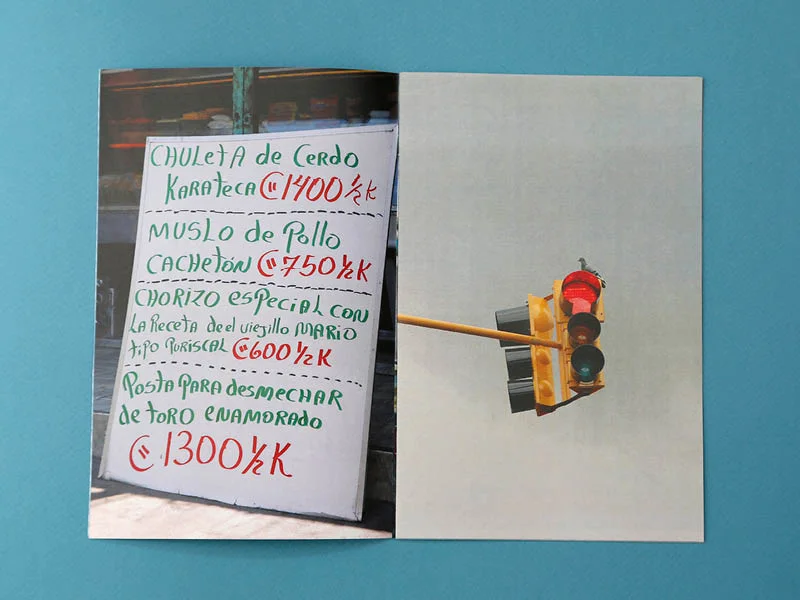 CHULETA de Cerdo
KARATECA ₡1400 ½ K
MUSLO de Pollo
CACHETÓN ₡750 ½ K
CHORIZO esPeciAL CON
LA ReCeTA de el viejillo MARIO
tiPO PURISCAL ₡600 ½ K
POSTA PARA desMeCHAR
de TORO eNAMORADO
₡1300 ½ K